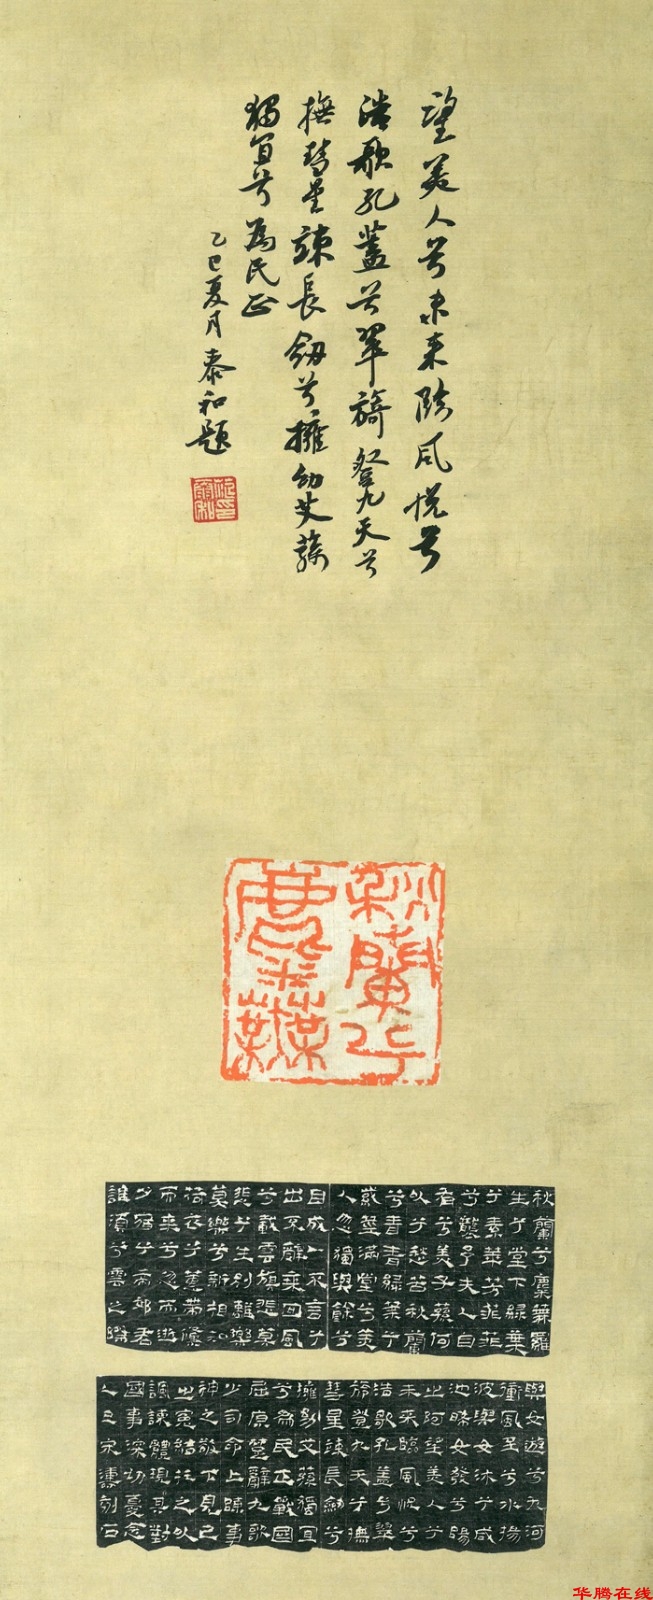 望美人兮未来臨风怳兮
浩歌孔蓋兮翠旍登九天兮
撫彗星竦長劍兮擁幼艾蓀
獨宜兮為民正
乙巳夏月泰和題
秋蘭兮
麋蕪
秋蘭兮麋蕪羅
生兮堂下綠葉
兮素華芳菲菲
兮襲予夫人自
有兮美子蓀何
以兮愁苦秋蘭
兮青青綠葉兮
紫莖滿堂兮美
人忽獨與餘兮
目成入不言兮
出不辭乘回風
兮載雲旗悲莫
悲兮生別離樂
莫樂兮新相知
荷衣兮蕙帶儵
而来兮忽而逝
夕宿兮帝郊君
誰須兮雲之際
與女遊兮九河
衝風至兮水揚
波與女沐兮咸
池晞女發兮陽
之阿望美人兮
未来臨風怳兮
浩歌孔蓋兮翠
旍登九天兮撫
彗星竦長劍兮
擁幼艾蓀獨宜
兮為民正戰國
屈原楚辭九歌
少司命上陳事
神之敬下見己
之冤結托之以
諷諫體現其對
國事深切憂念
刻石
华腾在线